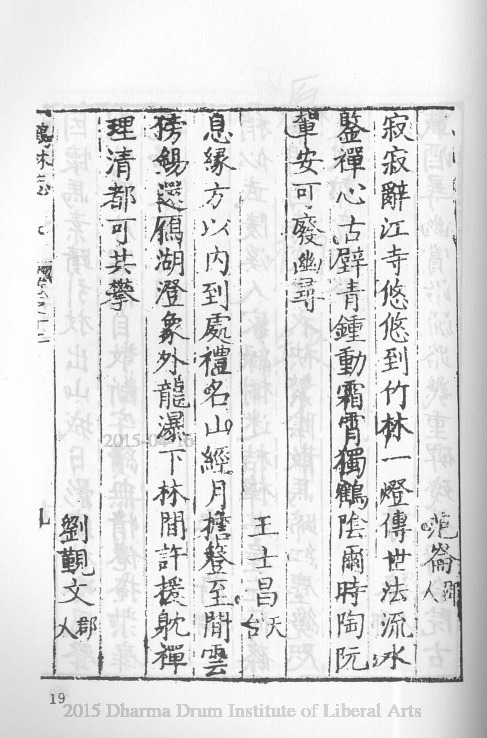 范崙郡人
寂寂辭江寺悠悠到竹林一燈傳世法流水
鑒禪心古壁青鍾動霜霄獨鶴陰爾時陶阮
輩安可廢幽尋
王士昌天台
息緣方以內到處禮名山經月擔簦至閒雲
傍錫還鴈湖澄象外龍瀑下林間許援躭禪
理清都可共攀
劉覲文郡人
鶴林志
19
2015 Dharma Drum Institute of Liberal Arts